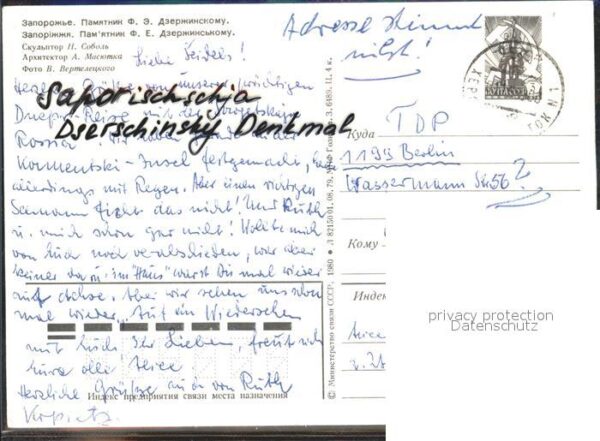 Запорожье. Памятник Ф. Э. Дзержинскому.
Запоріжжя. Пам'ятник Ф. Е. Дзержинському.
Скульптор Н. Соболь
Архитектор А. Масютка
Фото В. Вертелецкого
Adresse stimmt
nicht!
Liebe Seidels!
unserer prächtigen
Saporischschja
Dnepr-Reise mit der
Dserschinskij Denkmal
Rossia
Insel festgemacht,
allerdings mit Regen. Aber einen richtigen
Seemann ficht das nicht! Und Ruth
u. mich schon gar nicht! Wollte mich
von Euch noch verabschieden, war aber
keiner da u. im "Haus" warst Du mal wieder
auf Achse. Aber wir sehen uns schon
mal wieder. Auf ein Wiedersehen
mit Euch Ihr Lieben, freut sich
Eure alte
Herzliche Grüße auch von Ruth
Индекс предприятия связи места назначения
© Министерство связи СССР. 1980
Л 82150 01.08.79. 
Куда TDP
1199 Berlin
Wassermann Str 56?
Кому
Индек
ПОЧТА СССР
privacy protection
Datenschutz